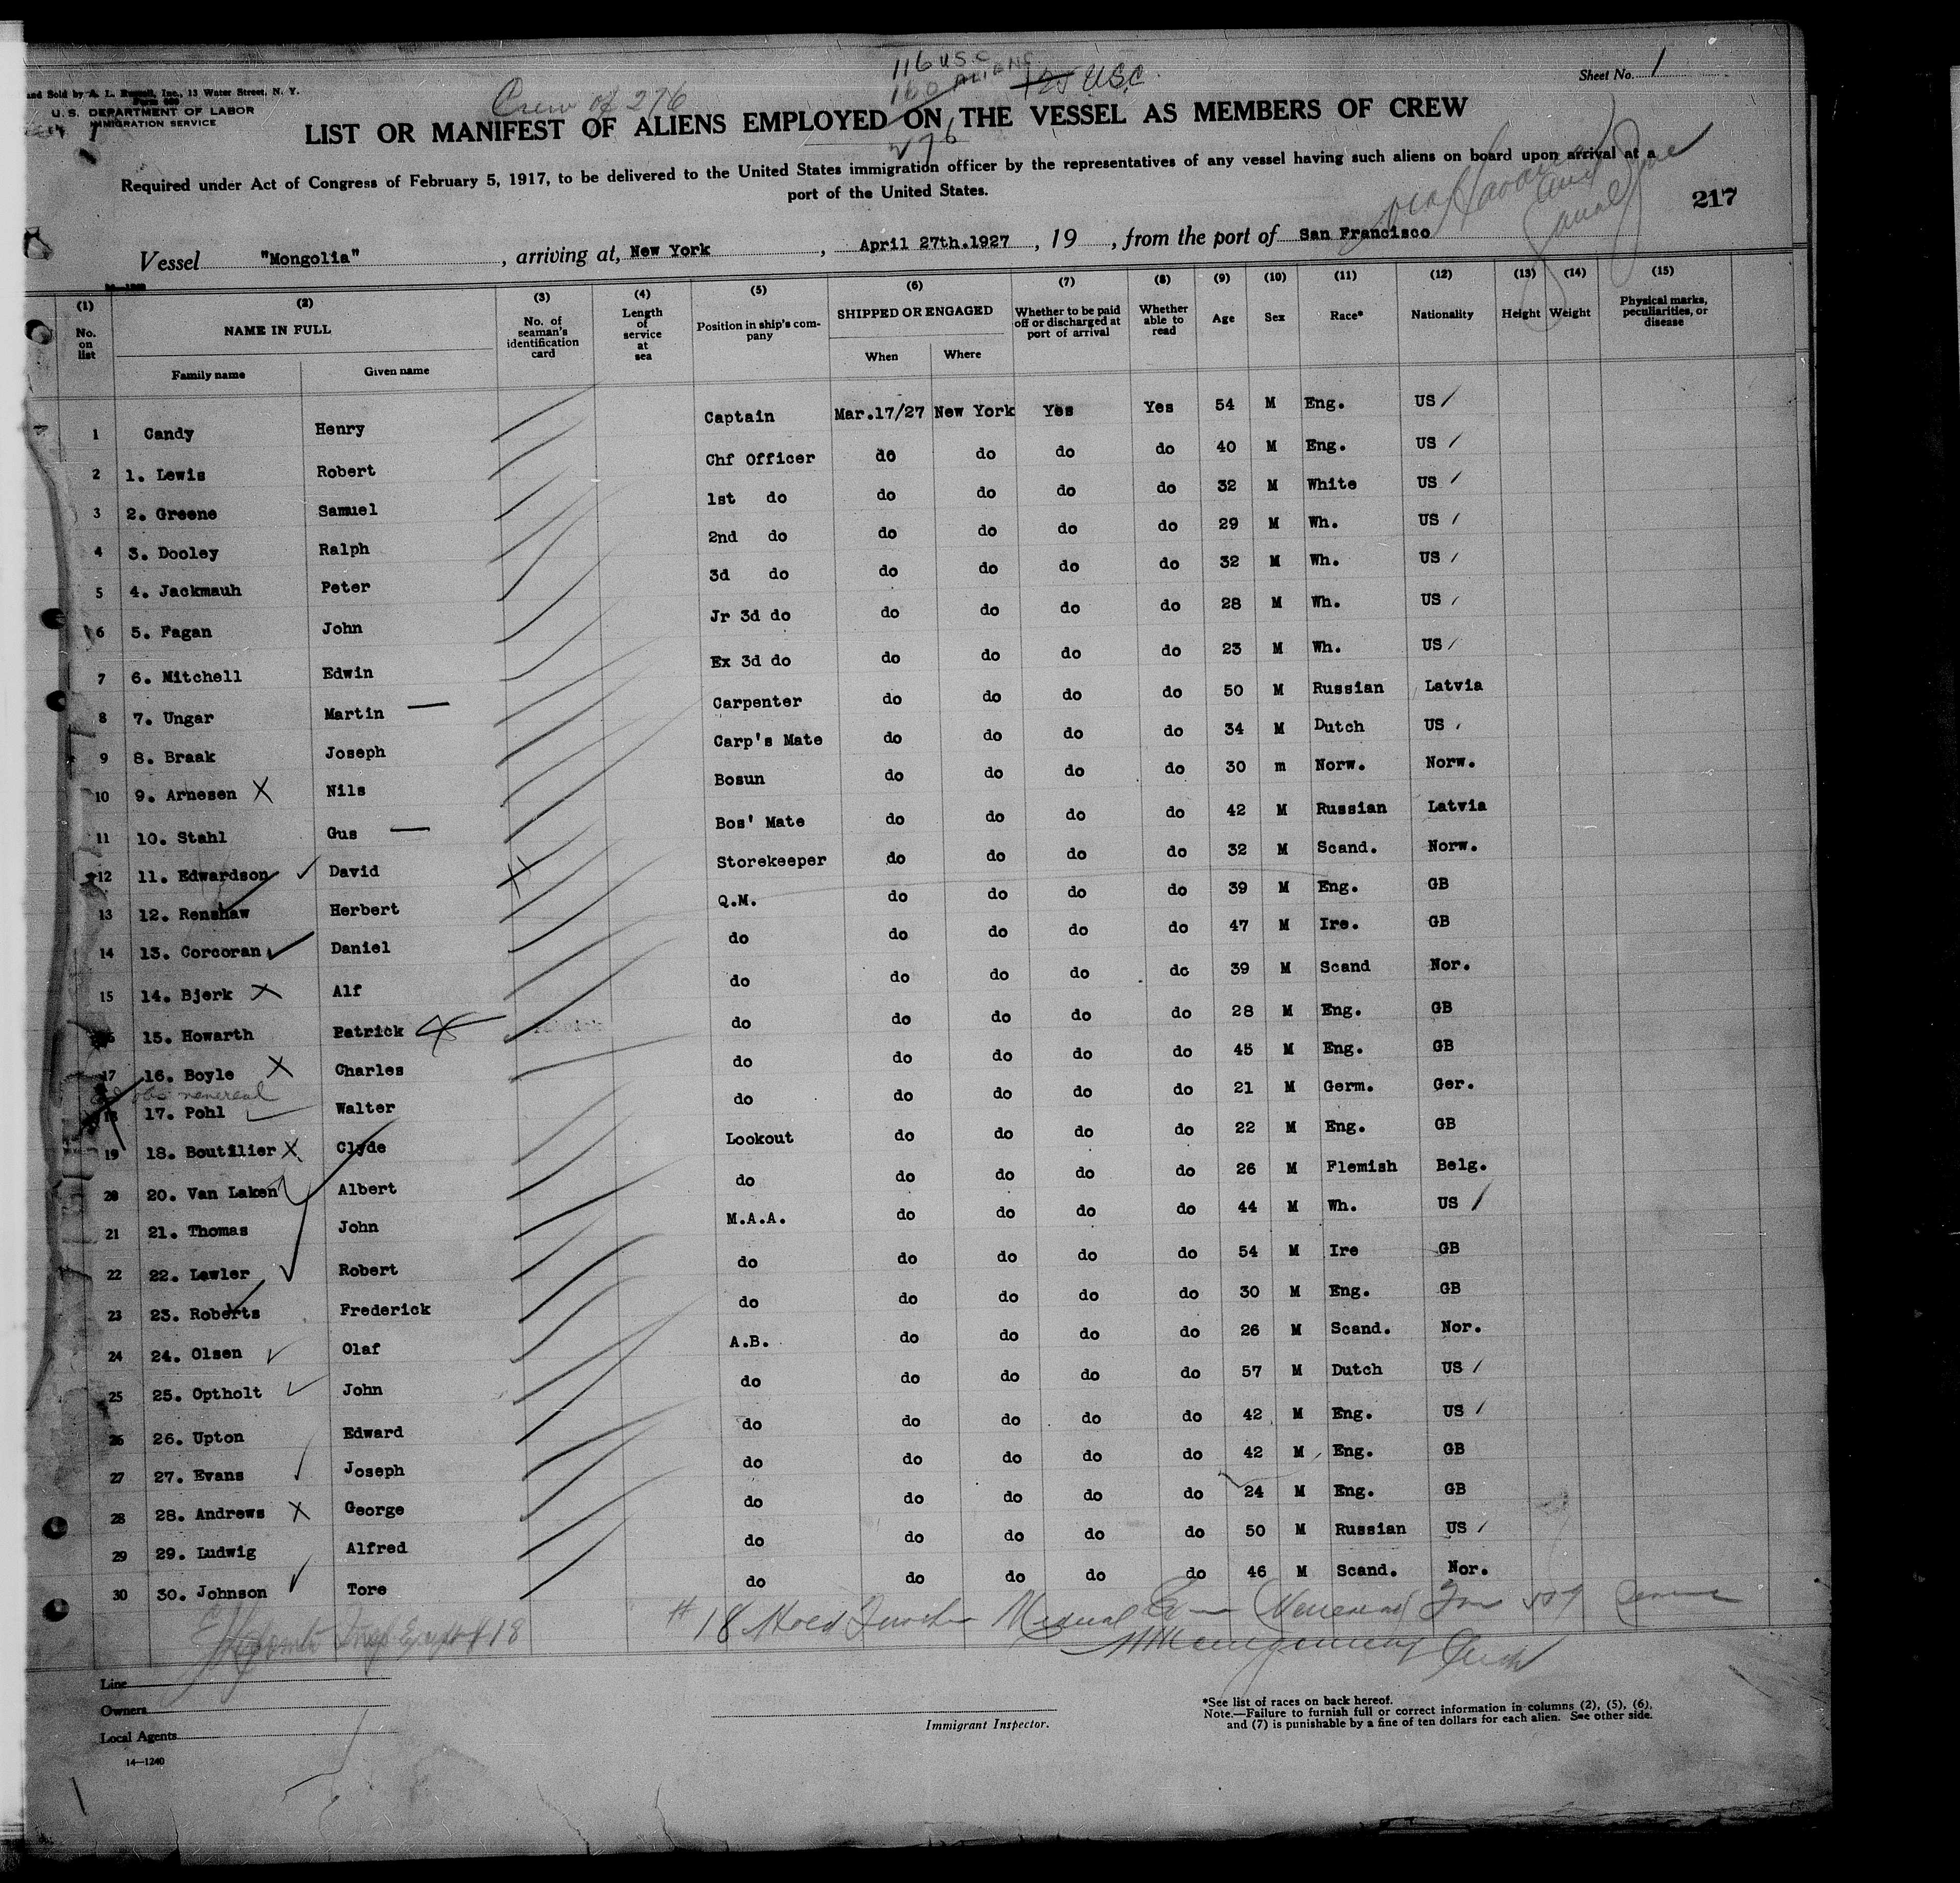 Sheet No. 1
116 USC
ALIENS
160
125 USC
Crew of 276
276
and Sold by A. L. Russell, Inc., 13 Water Street, N. Y.
U. S. DEPARTMENT OF LABOR
IMMIGRATION SERVICE
LIST OR MANIFEST OF ALIENS EMPLOYED ON THE VESSEL AS MEMBERS OF CREW
Required under Act of Congress of February 5, 1917, to be delivered to the United States immigration officer by the representatives of any vessel having such aliens on board upon arrival at a
port of the United States.
217
Vessel "Mongolia", arriving at, New York, April 27th.1927, 19, from the port of San Francisco
(1) (2) (3) (4) (5) (6) (7) (8) (9) (10) (11) (12) (13) (14) (15)
No. on list NAME IN FULL No. of seaman's identification card Length of service at sea Position in ship's company SHIPPED OR ENGAGED Whether to be paid off or discharged at port of arrival Whether able to read Age Sex Race* Nationality Height Weight Physical marks, peculiarities, or disease
Family name Given name When Where
1 Candy Henry Captain Mar.17/27 New York Yes Yes 54 M Eng. US
2 1. Lewis Robert Chf Officer do do do do 40 M Eng. US
3 2. Greene Samuel 1st do do do do do 32 M White US
4 3. Dooley Ralph 2nd do do do do do 29 M Wh. US
5 4. Jackmauh Peter 3d do do do do do 32 M Wh. US
6 5. Fagan John Jr 3d do do do do do 28 M Wh. US
7 6. Mitchell Edwin Ex 3d do do do do do 23 M Wh. US
8 7. Ungar Martin Carpenter do do do do 50 M Russian Latvia
9 8. Braak Joseph Carp's Mate do do do do 34 M Dutch US
10 9. Arnesen X Nils Bosun do do do do 30 m Norw. Norw.
11 10. Stahl Gus Bos' Mate do do do do 42 M Russian Latvia
12 11. Edwardson David Storekeeper do do do do 32 M Scand. Norw.
13 12. Renshaw Herbert Q.M. do do do do 39 M Eng. GB
14 13. Corcoran Daniel do do do do do 47 M Ire. GB
15 14. Bjerk X Alf do do do do do 39 M Scand Nor.
16 15. Howarth Patrick do do do do do 28 M Eng. GB
17 16. Boyle X Charles do do do do do 45 M Eng. GB
venereal
18 17. Pohl Walter do do do do do 21 M Germ. Ger.
19 18. Boutilier X Clyde Lookout do do do do 22 M Eng. GB
20 20. Van Laken Albert do do do do do 26 M Flemish Belg.
21 21. Thomas John M.A.A. do do do do 44 M Wh. US
22 22. Lawler Robert do do do do do 54 M Ire GB
23 23. Roberts Frederick do do do do do 30 M Eng. GB
24 24. Olsen Olaf A.B. do do do do 26 M Scand. Nor.
25 25. Optholt John do do do do do 57 M Dutch US
26 26. Upton Edward do do do do do 42 M Eng. US
27 27. Evans Joseph do do do do do 42 M Eng. GB
28 28. Andrews X George do do do do do 24 M Eng. GB
29 29. Ludwig Alfred do do do do do 50 M Russian US
30 30. Johnson Tore do do do do do 46 M Scand. Nor.
# 18 Hold
# 18
Line
Owners
Local Agents
14—1240
Immigrant Inspector.
*See list of races on back hereof.
Note.—Failure to furnish full or correct information in columns (2), (5), (6),
and (7) is punishable by a fine of ten dollars for each alien. See other side.